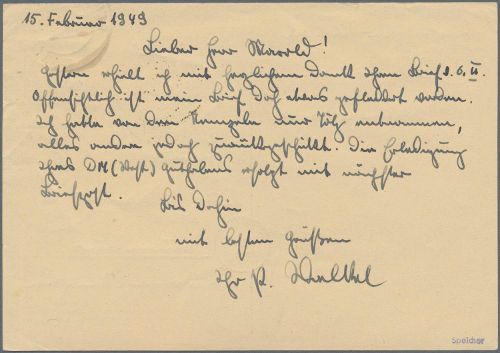 15. Februar 1949
Lieber Herr Marold!
Gestern erhielt ich mit herzlichem Dank Ihren Brief v. 6. II.
Offensichtlich ist mein Brief doch etwas gefleddert worden.
Ich hatte von drei nur entnommen,
alles andere jedoch zurückgeschickt. Die Erledigung
Ihres DM (West) Guthabens erfolgt mit nächster
Briefpost.
Bis dahin
mit besten Grüßen
Ihr P.
Speicher